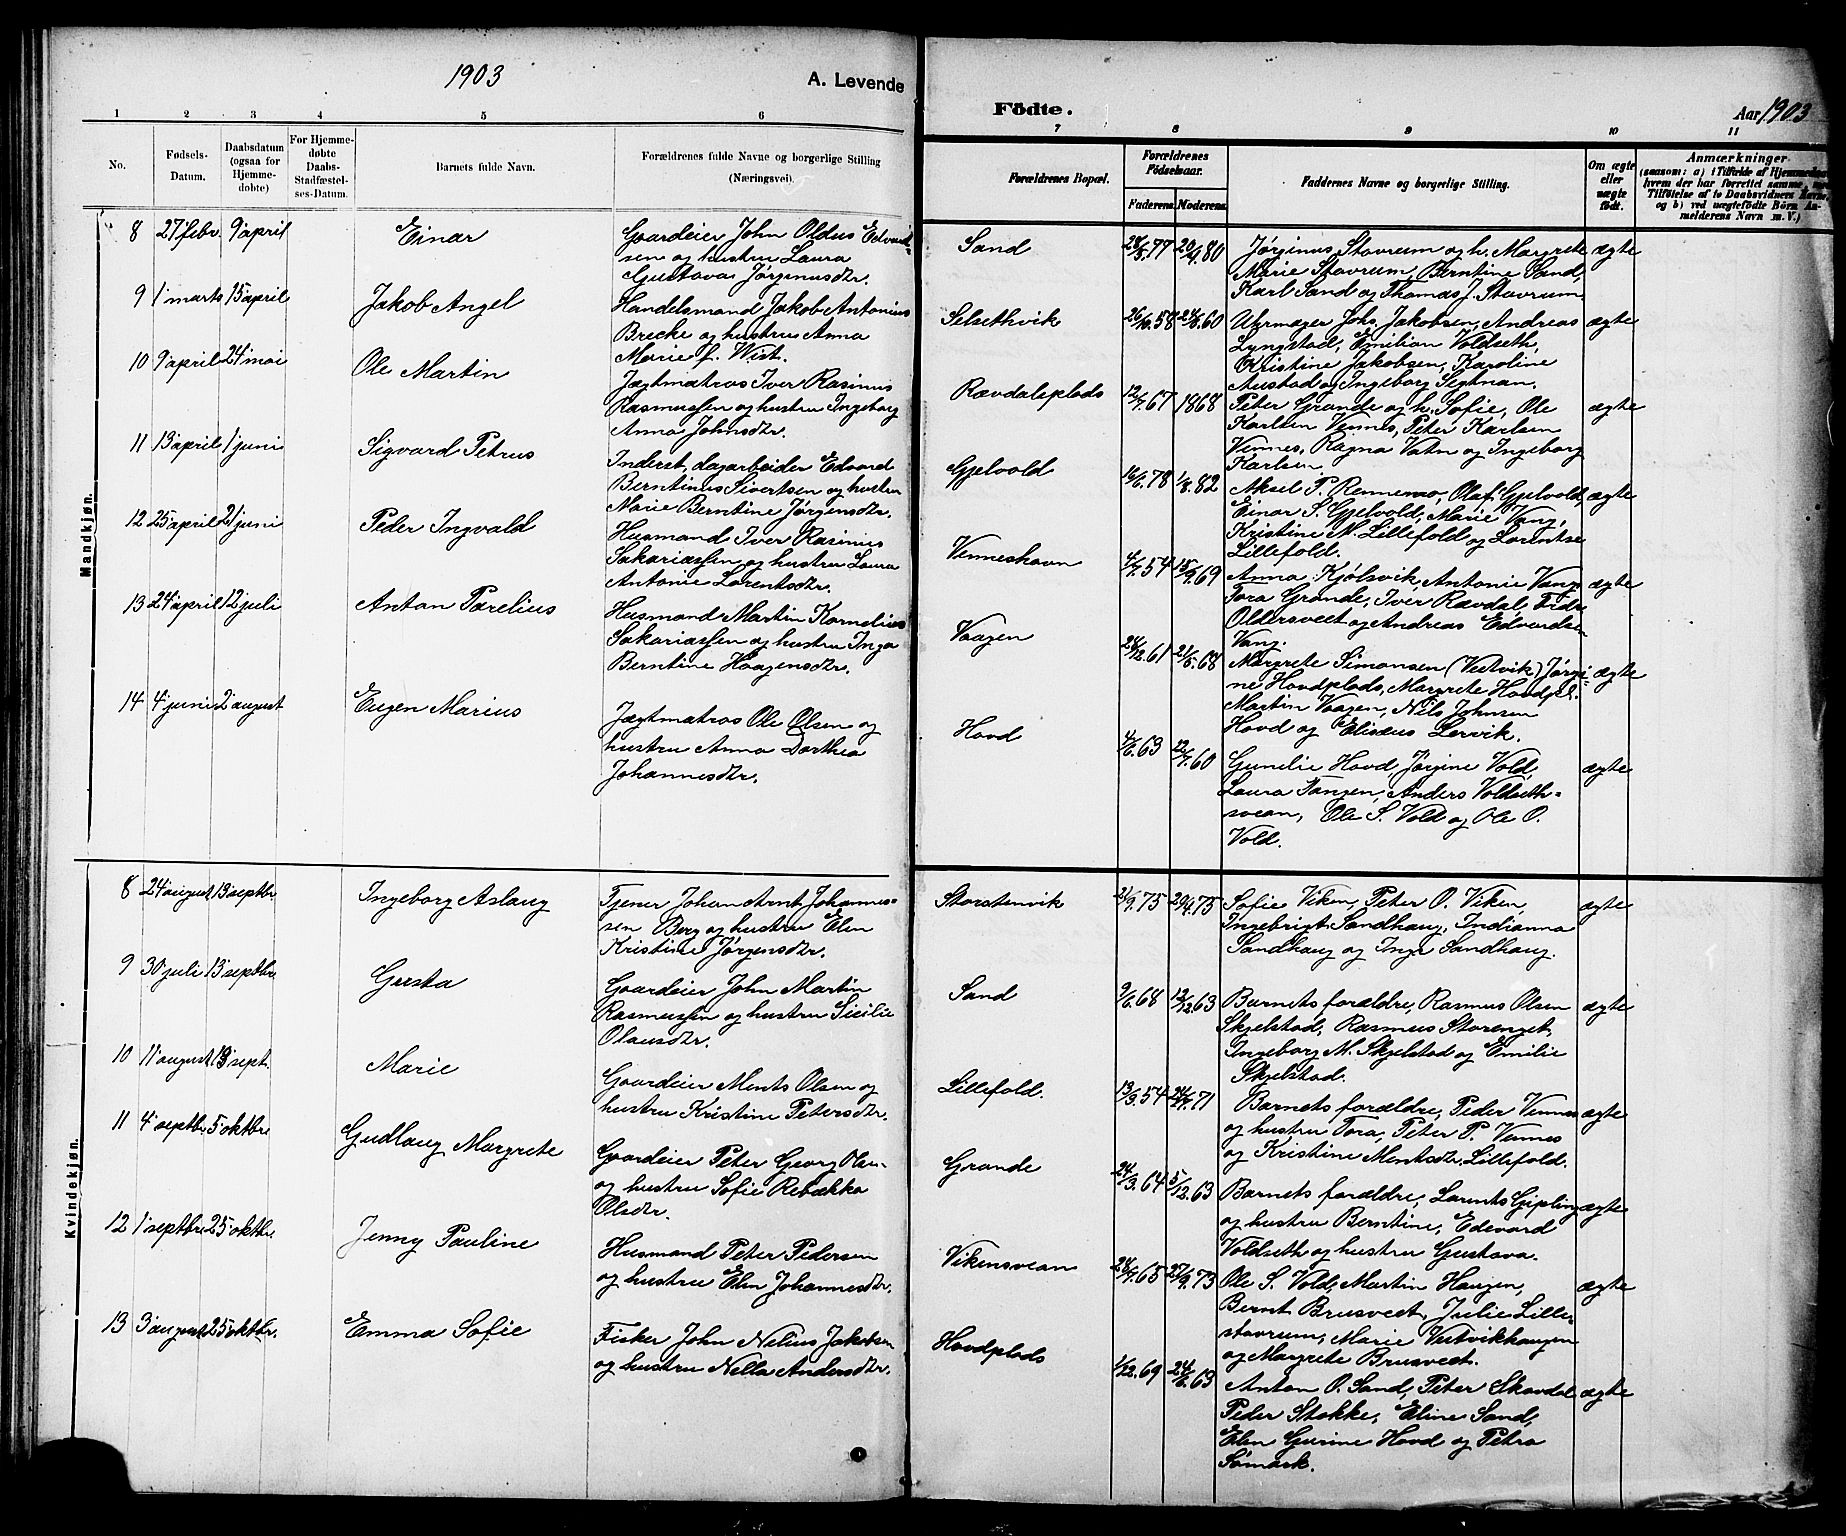 1903
A. Levende
Födte.
Aar 1903
1 2 3 4 5 6 7 8 9 10 11
No.
Fødsels-
Datum.
Daabsdatum
(ogsaa for
Hjemme-
døbte)
For Hjemme-
døbte
Daabs-
Stadfæstel-
ses-Datum.
Barnets fulde Navn.
Forældrenes fulde Navne og borgerlige Stilling
(Næringsvei).
Forældrenes Bopæl.
Forældrenes
Fødselsaar.
Faderens Moderens
Faddernes Navne og borgerlige Stilling.
Om ægte
eller
uægte
født.
Anmærkninger
(saasom: a) i Tilfælde af Hjemmedaab
hvem der har forrettet samme, med
Tilføielse af to Daabsvidners Navne,
og b) ved uægtefødte Börn An-
melderens Navn m. V.)
Mandkjön.
8 27 febr. 9 april Einar
Gaardeier John Oldus Edvard-
sen og hustru Laura
Gustava Jørgenusdtr.
Sand 80 ægte
Jørginus Stavrum og h. Margrete
Marie Stavrum, Berntine Sand,
Karl Sand og Thomas J. Stavrum.
9 1 marts 15 april Jakob Angel
Handelsmand Jakob Antonius
Brecke og hustru Anna
Marie f. Wist.
Selsethvik 26/10.58 60 ægte
Uhrmager Johs. Jakobsen, Andreas
Lyngstad, Emilian Voldseth,
Kristine Jakobsen, Karoline
Austad og Ingeborg Segtnan.
10 9 april 24 mai Ole Martin
Jægtmatros Iver Rasinus
Rasmussen og hustru Ingeborg
Anna Johnsdtr.
Rævdalsplads 12/7.67 1868 ægte
Peter Grande og h. Sofie, Ole
Karlsen Vennes, Peter Karlsen
Vennes, Ragna Vatn og Ingeborg
Karlsen.
11 13 april 1 juni Sigvard Petrus
Inderst, dagarbeider Edvard
Berntinus Sivertsen og hustru
Marie Berntine Jørgensdtr.
Gjelvold 78 1/8.82 ægte
Aksel P. Rennemo, Olaf Gjelvold,
Einar S. Gjelvold, Marie Vang,
Kristine M. Lillefold og Lorentse
Lillefold.
12 25 april 21 juni Peder Ingvald
Husmand Iver Rasinus
Sakariassen og hustru Laura
Antonie Lorentsdtr.
Venneshavn 4/7.54 18/9.69 ægte
Anna Kjølsvik, Antonie Vang,
Tora Grande, Iver Rævdal,
Oldersveet og Andreas Edvardsen
Vang.
13 24 april 12 juli Anton Parelius
Husmand Martin Kornelius
Sakariassen og hustru Inga
Berntine Haagensdtr.
Vaagen 61 68 ægte
Margrete Simonsen (Vestvik) Jørgi-
ne Hovdplads, Margrete Hovdpl.
Martin Vaagen, Nils Johnsen
Hovd og Elisæus Lervik.
14 4 juni 2 august Eugen Marius
Jægtmatros Ole Olsen og
hustru Anna Dorthea
Johannesdtr.
Hovd 4/6.63 12/7.60 ægte
Gunelie Hovd, Jørgine Vold,
Laura Tangen, Anders Voldseth-
svean, Ole S. Vold og Ole O.
Vold.
Kvindekjön.
8 24 august 13 septbr. Ingeborg Aslaug
Tjener Johan Arnt Johannes-
sen Berg og hustru Elen
Kristine Jørgensdtr.
Storstenvik 21/9.75 29/4.75 ægte
Sofie Viken, Peter O. Viken,
Ingebrigt Sandhaug, Indianna
Sandhaug og Inga Sandhaug.
9 30 juli 13 septbr. Gusta
Gaardeier John Martin
Rasmussen og hustru Sicilie
Olausdtr.
Sand 9/6.68 12/12.63 ægte
Barnets forældre, Rasmus Olsen
Skjelstad, Rasmus Storenget,
Ingeborg M. Skjelstad og Emilie
Skjelstad.
10 11 august 13 sept. Marie
Gaardeier Ments Olsen og
hustru Kristine Petersdtr.
Lillefold. 13/3.54 71 ægte
Barnets forældre, Peder Vennes
og hustru Tora, Peter P. Vennes
og Kristine Mentsdtr. Lillefold.
11 4 septbr. 5 oktbr. Gudlaug Margrete
Gaardeier Peter Georg
og hustru Sofie Rebækka
Olsdtr.
Grande 24/3.64 5/12.63 ægte
Barnets forældre, Lorents Gipling
og hustru Berntine, Edevard
Voldseth og hustru Gustava.
12 1 septbr. 25 oktbr. Jenny Pauline
Husmand Peter Pedersen
og hustru Elen Johannesdtr.
Vikensvean 65 27/9.73 ægte
Ole S. Vold, Martin Haugen,
Bernt Brusveet, Julie Lille-
stavrum, Marie Vestvikhaugen
og Margrete Brusveet.
13 3 august 25 oktbr. Emma Sofie
Fisker John Nelius Jakobsen
og hustru Nella Andersdtr.
Hovdplads 1/12.69 24/6.63 ægte
Anton O. Sand, Peter Skavdal
Peder Stokke, Eline Sand,
Elen Gurine Hovd og Petra
Sømark.